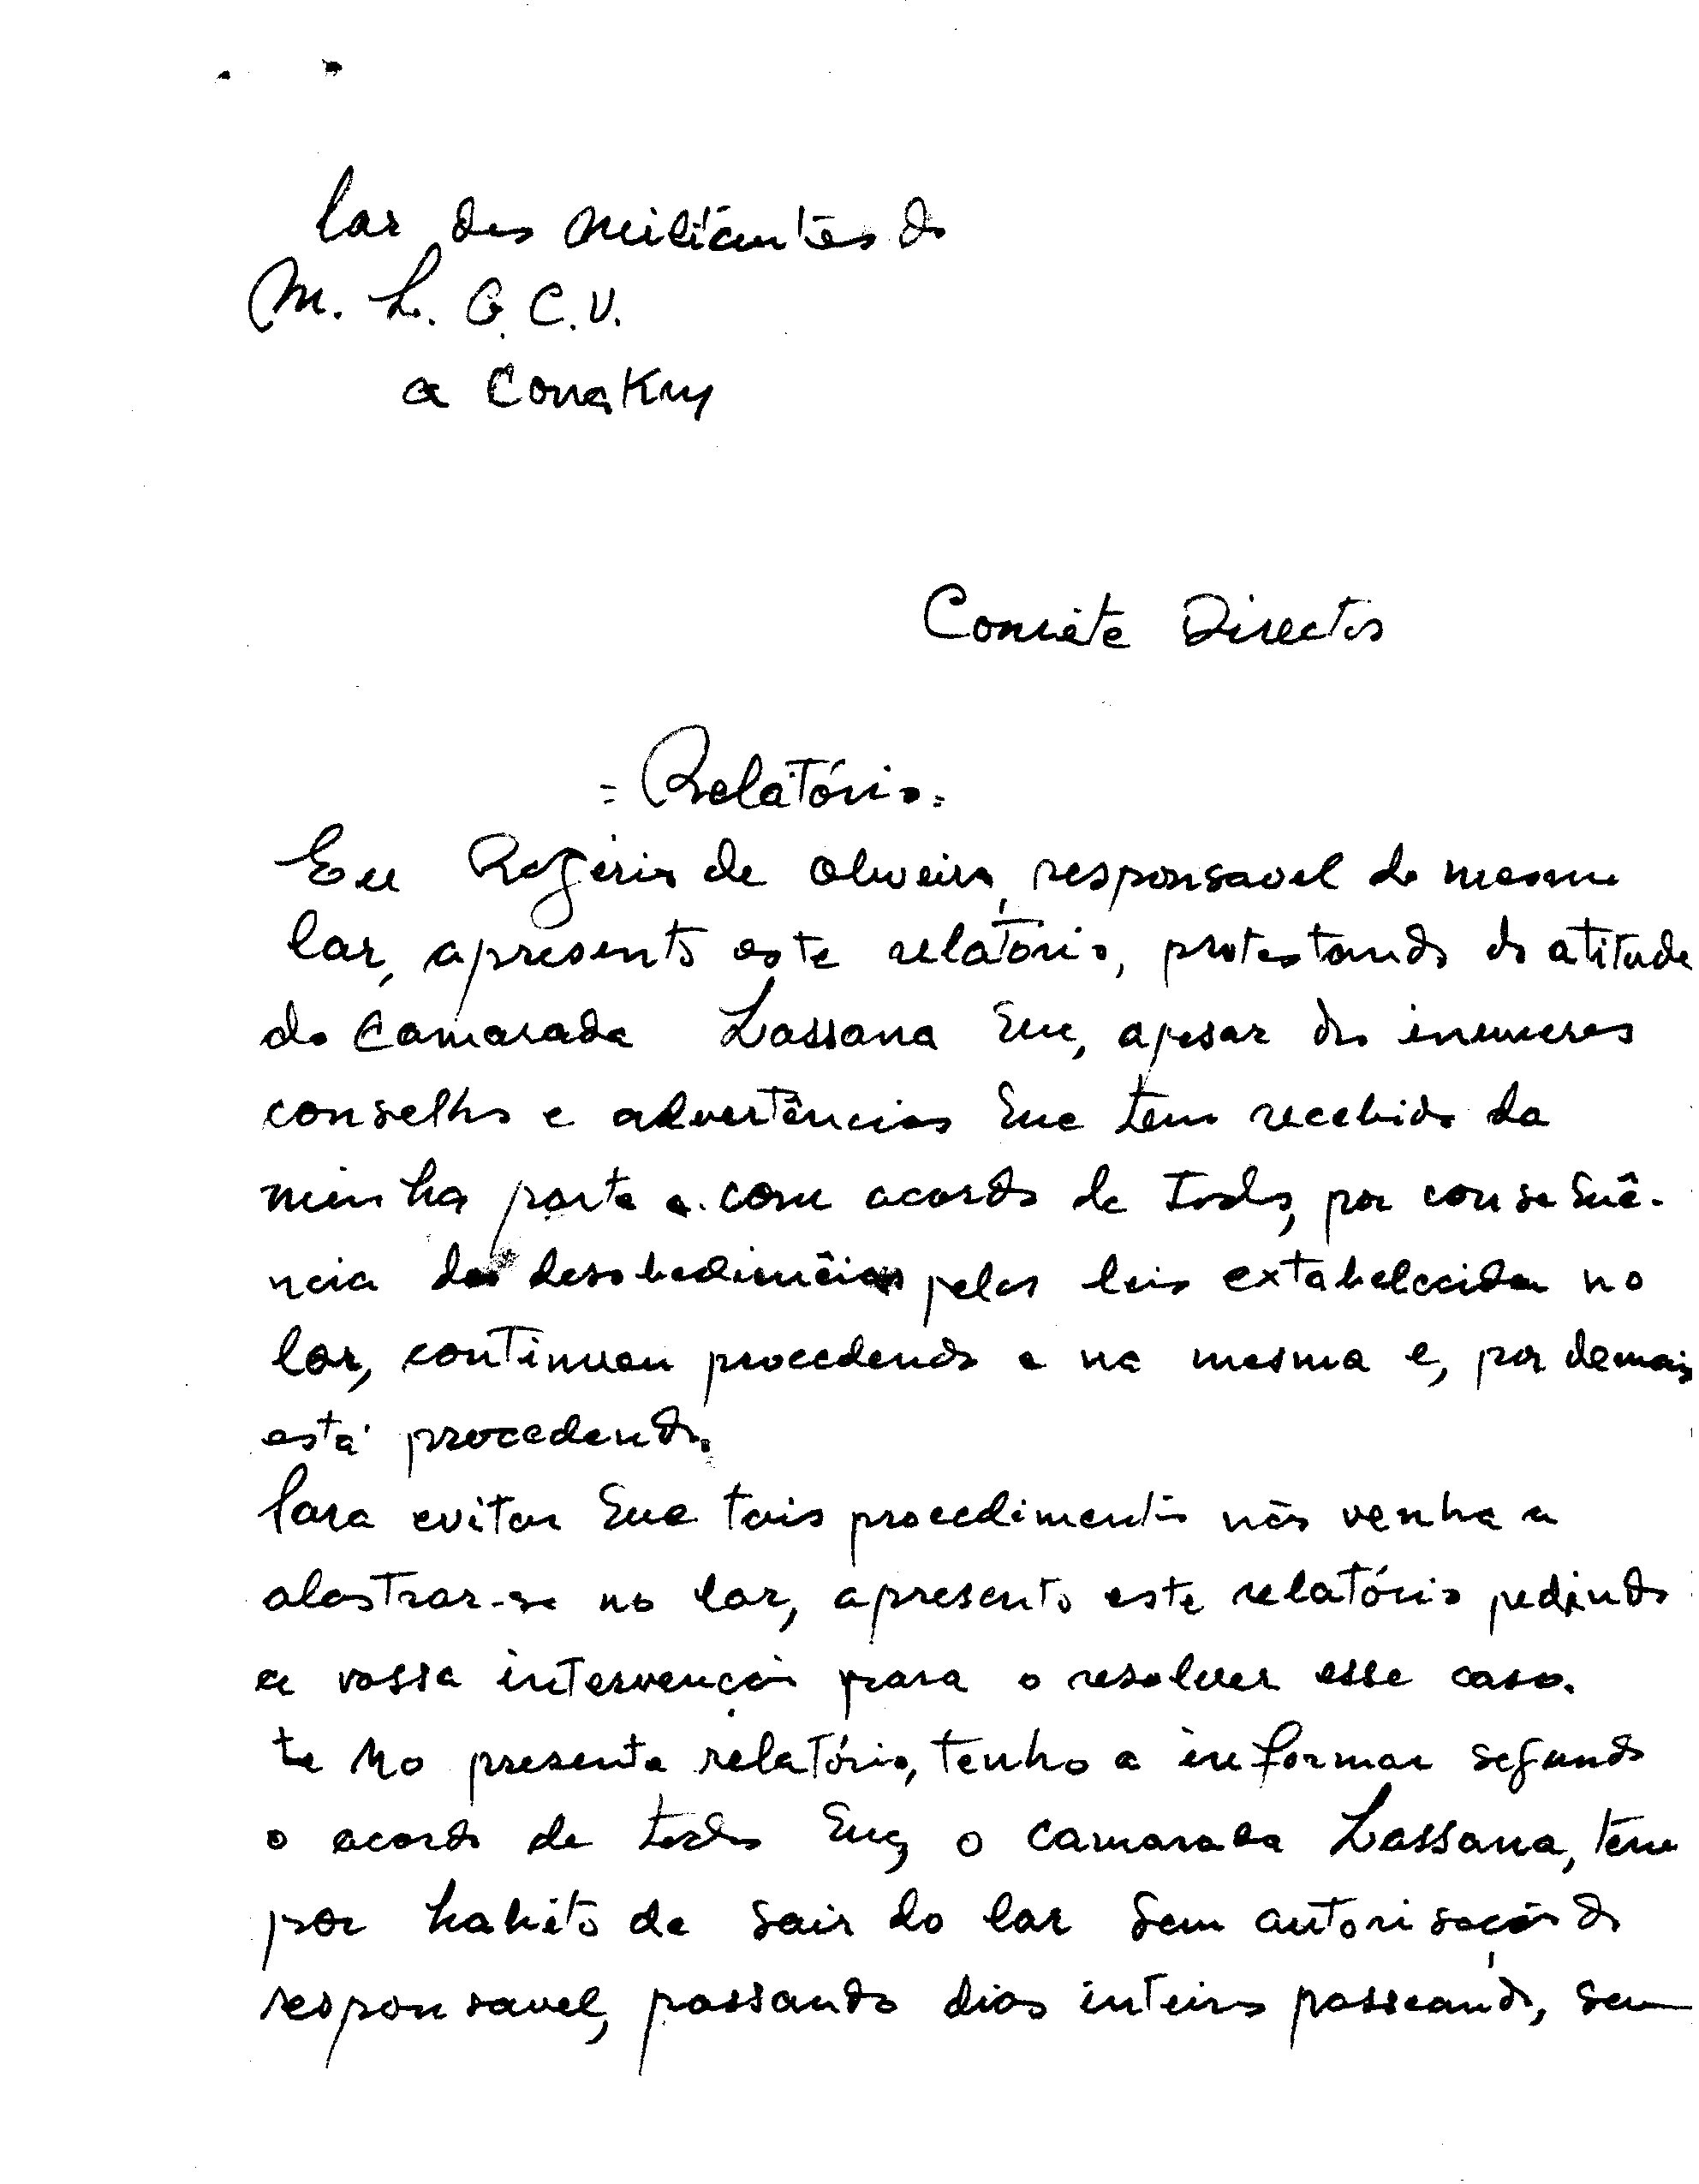 lar dos militantes do
M. L. G. C. V.
a Conakry
Comite Director
= Relatório =
Eu Rogério de Oliveira, responsavel do mesmo
lar, apresento este relatório, protestando do atitude
do Camarada Lassana que, apesar dos inumeros
conselhos e advertências que tem recebido da
minha parte e com acordo de todos, por consequê-
ncia das desobediências pelas leis extabelecidas no
lar, continuou procedendo e na mesma e, por demais
está procedendo.
Para evitar que tais procedimentos não venha a
alastrar-se no lar, apresento este relatório pedindo
a vossa intervenção para o resolver esse caso.
te No presente relatório, tenho a informar segundo
o acordo de todos que, o camarada Lassana, tem
por habito de sair do lar sem autorisação do
responsavel, passando dias inteiros passeando, sem